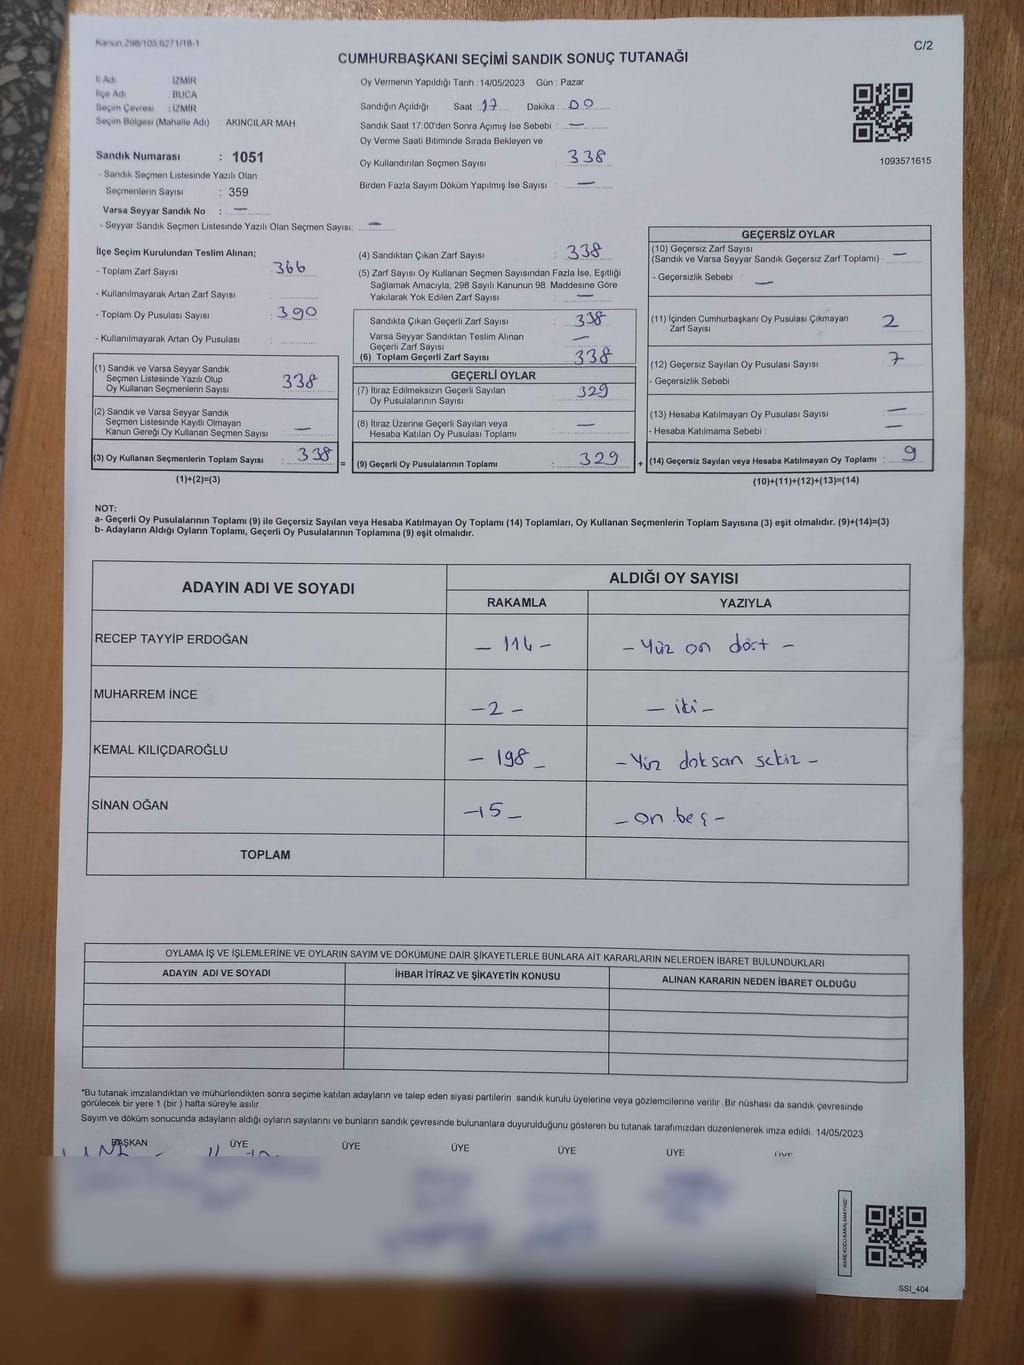 Kanun 298/105,6271/18-1
C/2
CUMHURBAŞKANI SEÇİMİ SANDIK SONUÇ TUTANAĞI
İl Adı : İZMİR
İlçe Adı : BUCA
Seçim Çevresi : İZMİR
Seçim Bölgesi (Mahalle Adı) : AKINCILAR MAH
Sandık Numarası : 1051
- Sandık Seçmen Listesinde Yazılı Olan
Seçmenlerin Sayısı : 359
Varsa Seyyar Sandık No : —
- Seyyar Sandık Seçmen Listesinde Yazılı Olan Seçmen Sayısı: —
Oy Vermenin Yapıldığı Tarih :14/05/2023 Gün : Pazar
Sandığın Açıldığı Saat : 17 Dakika : 00
Sandık Saat 17:00'den Sonra Açımış İse Sebebi : —
Oy Verme Saati Bitiminde Sırada Bekleyen ve
Oy Kullandırılan Seçmen Sayısı : 338
Birden Fazla Sayım Döküm Yapılmış İse Sayısı : —
1093571615
İlçe Seçim Kurulundan Teslim Alınan;
- Toplam Zarf Sayısı : 366
- Kullanılmayarak Artan Zarf Sayısı :
- Toplam Oy Pusulası Sayısı : 390
- Kullanılmayarak Artan Oy Pusulası :
(1) Sandık ve Varsa Seyyar Sandık
Seçmen Listesinde Yazılı Olup
Oy Kullanan Seçmenlerin Sayısı : 338
(2) Sandık ve Varsa Seyyar Sandık
Seçmen Listesinde Kayıtlı Olmayan
Kanun Gereği Oy Kullanan Seçmen Sayısı : —
(3) Oy Kullanan Seçmenlerin Toplam Sayısı : 338
(1)+(2)=(3)
(4) Sandıktan Çıkan Zarf Sayısı : 338
(5) Zarf Sayısı Oy Kullanan Seçmen Sayısından Fazla İse, Eşitliği
Sağlamak Amacıyla, 298 Sayılı Kanunun 98. Maddesine Göre
Yakılarak Yok Edilen Zarf Sayısı : —
Sandıkta Çıkan Geçerli Zarf Sayısı : 338
Varsa Seyyar Sandıktan Teslim Alınan
Geçerli Zarf Sayısı : —
(6) Toplam Geçerli Zarf Sayısı : 338
GEÇERLİ OYLAR
(7) İtiraz Edilmeksizin Geçerli Sayılan
Oy Pusulalarının Sayısı : 329
(8) İtiraz Üzerine Geçerli Sayılan veya
Hesaba Katılan Oy Pusulası Toplamı : —
= (9) Geçerli Oy Pusulalarının Toplamı : 329
GEÇERSİZ OYLAR
(10) Geçersiz Zarf Sayısı
(Sandık ve Varsa Seyyar Sandık Geçersiz Zarf Toplamı) : —
- Geçersizlik Sebebi : —
(11) İçinden Cumhurbaşkanı Oy Pusulası Çıkmayan
Zarf Sayısı 2
(12) Geçersiz Sayılan Oy Pusulası Sayısı : 7
- Geçersizlik Sebebi :
(13) Hesaba Katılmayan Oy Pusulası Sayısı : —
- Hesaba Katılmama Sebebi : —
+ (14) Geçersiz Sayılan veya Hesaba Katılmayan Oy Toplamı : 9
(10)+(11)+(12)+(13)=(14)
NOT:
a- Geçerli Oy Pusulalarının Toplamı (9) ile Geçersiz Sayılan veya Hesaba Katılmayan Oy Toplamı (14) Toplamları, Oy Kullanan Seçmenlerin Toplam Sayısına (3) eşit olmalıdır. (9)+(14)=(3)
b- Adayların Aldığı Oyların Toplamı, Geçerli Oy Pusulalarının Toplamına (9) eşit olmalıdır.
ADAYIN ADI VE SOYADI ALDIĞI OY SAYISI
RAKAMLA YAZIYLA
RECEP TAYYİP ERDOĞAN — 114 — — Yüz on dört —
MUHARREM İNCE — 2 — — iki —
KEMAL KILIÇDAROĞLU — 198 — — Yüz doksan sekiz —
SİNAN OĞAN — 15 — — on beş —
TOPLAM
OYLAMA İŞ VE İŞLEMLERİNE VE OYLARIN SAYIM VE DÖKÜMÜNE DAİR ŞİKAYETLERLE BUNLARA AİT KARARLARIN NELERDEN İBARET BULUNDUKLARI
ADAYIN ADI VE SOYADI İHBAR İTİRAZ VE ŞİKAYETİN KONUSU ALINAN KARARIN NEDEN İBARET OLDUĞU
*Bu tutanak imzalandıktan ve mühürlendikten sonra seçime katılan adayların ve talep eden siyasi partilerin sandık kurulu üyelerine veya gözlemcilerine verilir .Bir nüshası da sandık çevresinde
görülecek bir yere 1 (bir ) hafta süreyle asılır.
Sayım ve döküm sonucunda adayların aldığı oyların sayılarını ve bunların sandık çevresinde bulunanlara duyurulduğunu gösteren bu tutanak tarafımızdan düzenlenerek imza edildi. 14/05/2023
BAŞKAN ÜYE ÜYE ÜYE ÜYE ÜYE ÜYE
KARE KODU KARALAMAYINIZ!
SSI_404